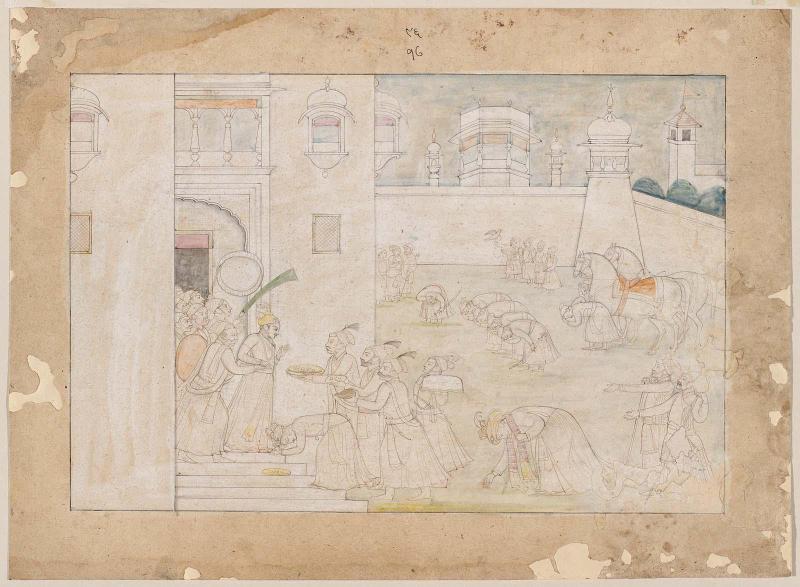 ९६
96